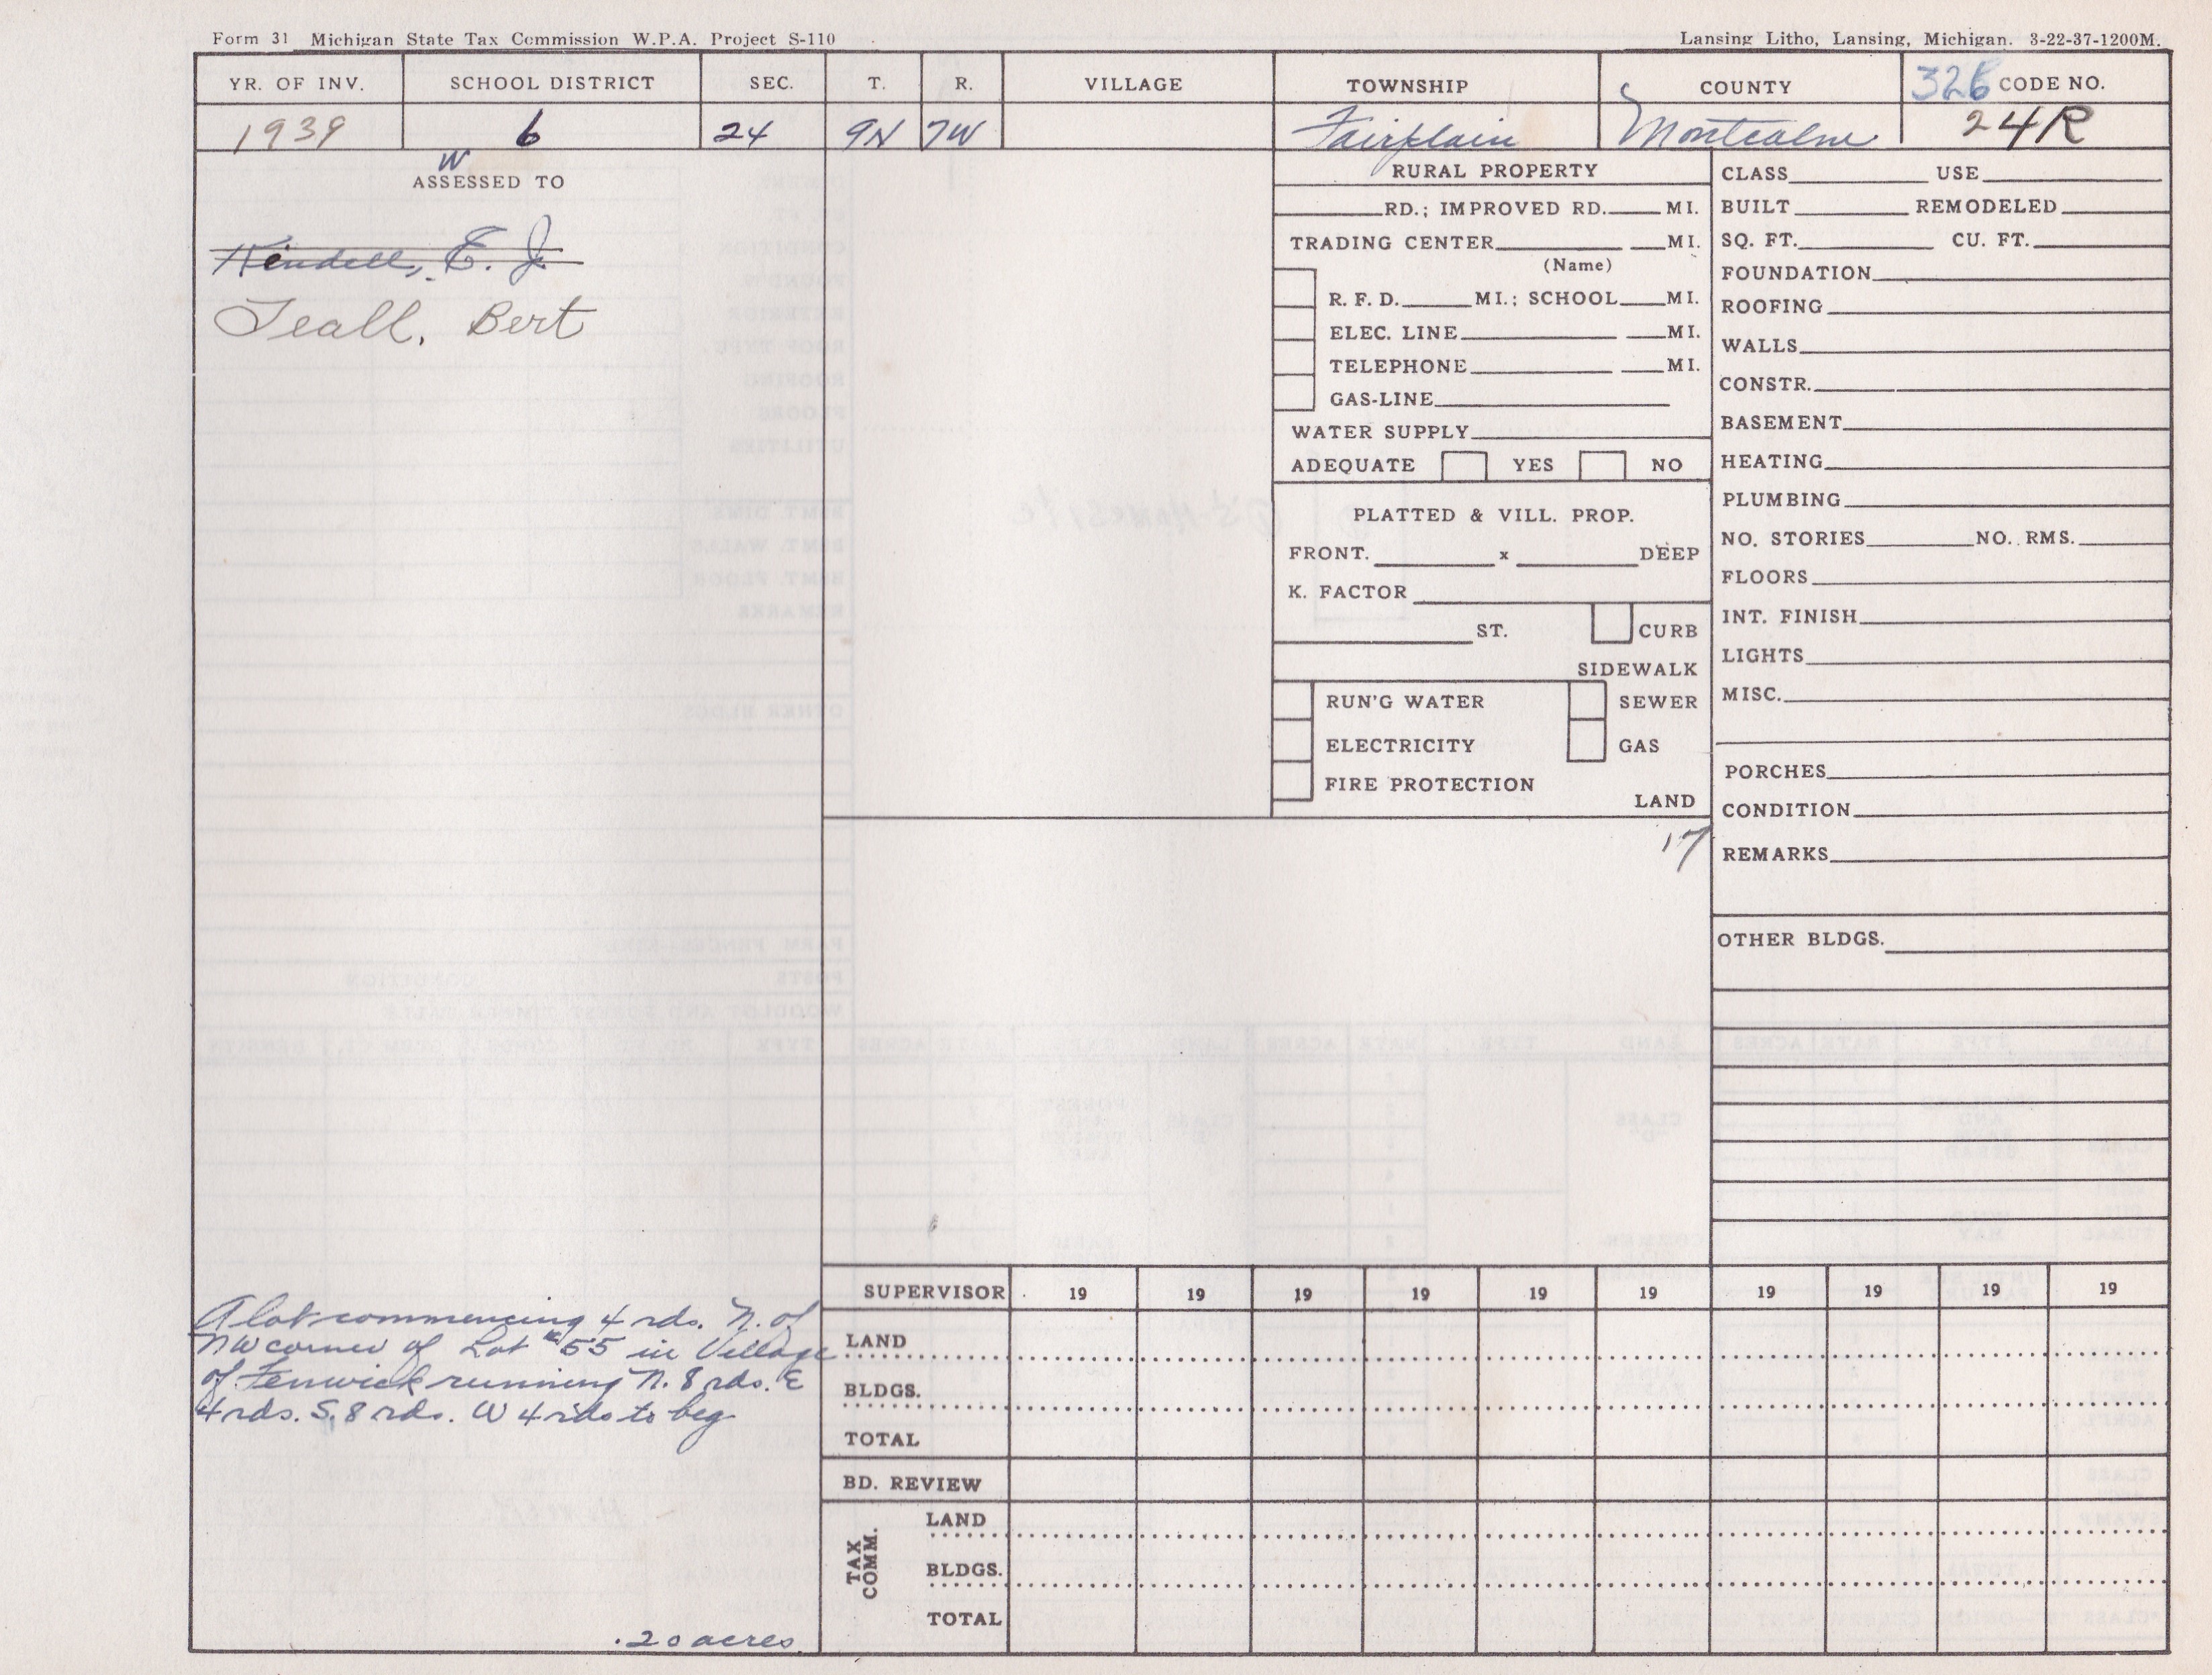 Form 31 Michigan State Tax Commission W.P.A. Project S-110
Lansing Litho, Lansing, Michigan. 3-22-37-1200M.
YR. OF INV. SCHOOL DISTRICT SEC. T. R. VILLAGE TOWNSHIP COUNTY 326 CODE NO.
1939 6 24 9N 7W Fairplain Montcalm 24R
W
ASSESSED TO
Kendell, E. J.
Teall, Bert
RURAL PROPERTY
RD.; IMPROVED RD. MI.
TRADING CENTER MI.
(Name)
R. F. D. MI.; SCHOOL MI.
ELEC. LINE MI.
TELEPHONE MI.
GAS-LINE
WATER SUPPLY
ADEQUATE YES NO
PLATTED & VILL. PROP.
FRONT. x DEEP
K. FACTOR
ST. CURB
SIDEWALK
RUN'G WATER SEWER
ELECTRICITY GAS
FIRE PROTECTION
LAND
17
CLASS USE
BUILT REMODELED
SQ. FT. CU. FT.
FOUNDATION
ROOFING
WALLS
CONSTR.
BASEMENT
HEATING
PLUMBING
NO. STORIES NO. RMS.
FLOORS
INT. FINISH
LIGHTS
MISC.
PORCHES
CONDITION
REMARKS
OTHER BLDGS.
A lot commencing 4 rds. N. of
NW corner of Lot #55 in Village
of Fenwick running N. 8 rds. E
4 rds. S. 8 rds. W 4 rds to beg
.20 acres
SUPERVISOR 19 19 19 19 19 19 19 19 19 19
LAND
BLDGS.
TOTAL
BD. REVIEW
TAX COMM.
LAND
BLDGS.
TOTAL